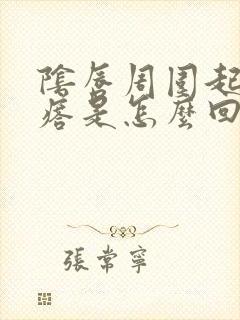 陰唇周圍起
痞是怎麼回
張常寧